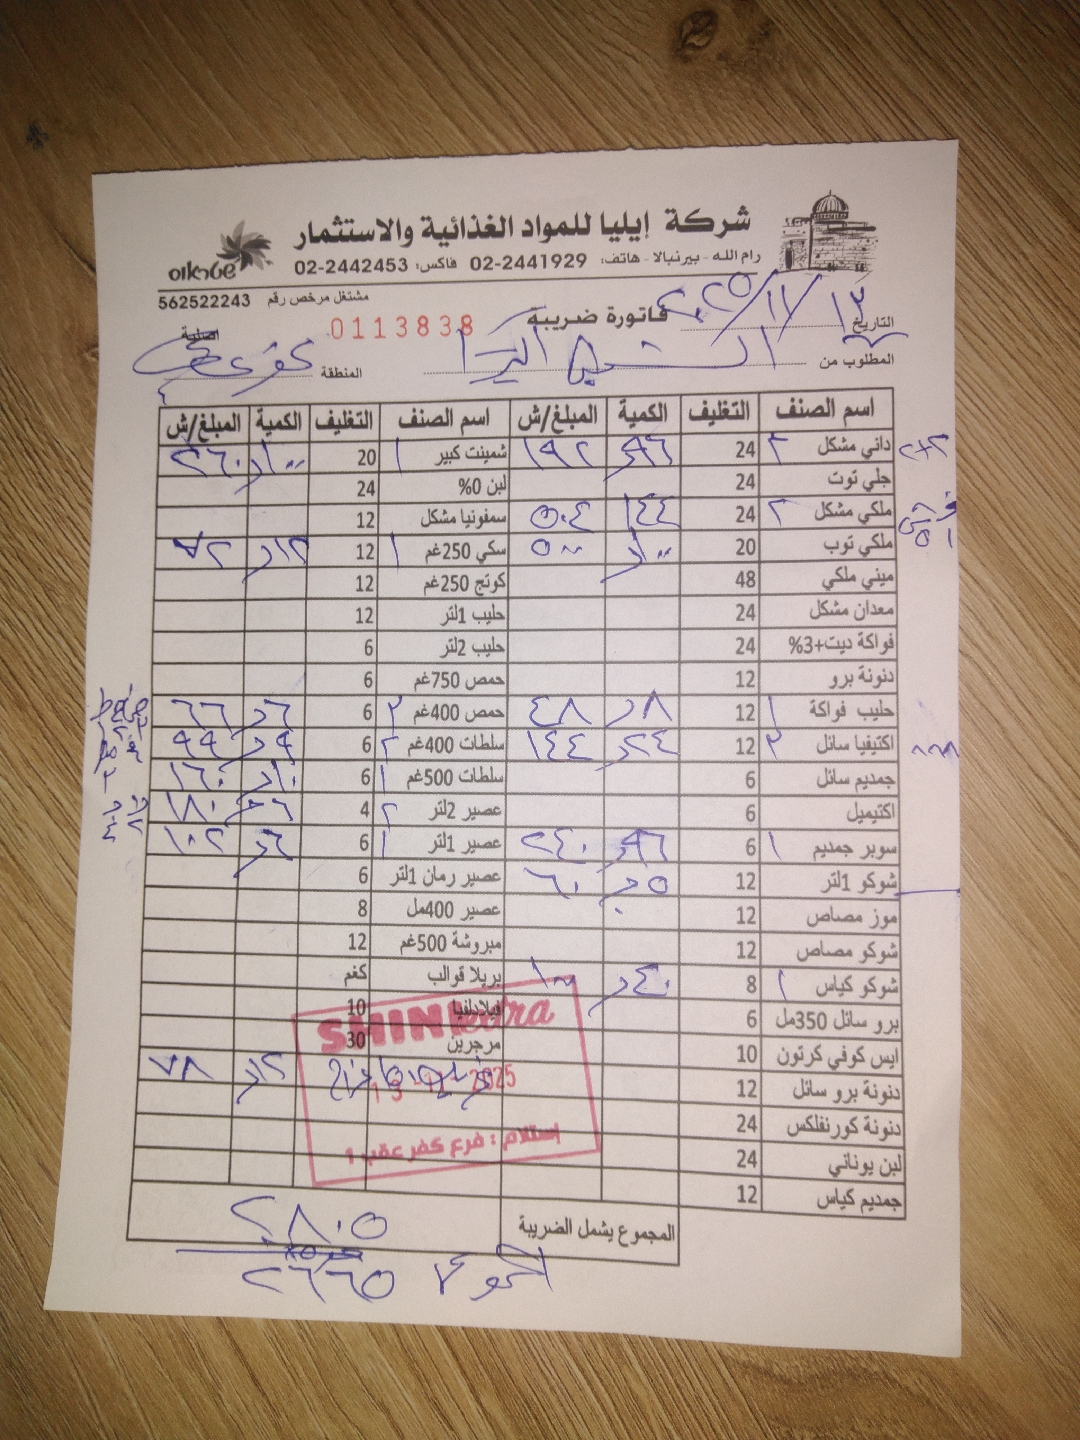 شركة إيليا للمواد الغذائية والاستثمار
شتراوس
رام الله - بيرنبالا - هاتف: 02-2441929 فاكس: 02-2442453
مشتغل مرخص رقم 562522243
التاريخ ١٣/١١/٢٠٢٥ فاتورة ضريبه 0113838 اصلية
المطلوب من المنطقة كفر عقب
اسم الصنف التغليف الكمية المبلغ/ش اسم الصنف التغليف الكمية المبلغ/ش
داني مشكل 24 ٩٦ ١٩٢ شمينت كبير ١ 20 ١٠٠ ٢٦٠
جلي توت 24 لبن 0% 24
ملكي مشكل ٢ 24 ١٤٤ ٥٠٤ سمفونيا مشكل 12
ملكي توب 20 ١٠٠ ٥٠٠ سكي 250غم ١ 12 ١٢ ٧٢
ميني ملكي 48 كوتج 250غم 12
معدان مشكل 24 حليب 1لتر 12
فواكة ديت+3% 24 حليب 2لتر 6
دنونة برو 12 حمص 750غم 6
حليب فواكة ١ 12 ٨ ٤٨ حمص 400غم 6 ٦ ٦٦
اكتيفيا سائل 12 ٢٤ ١٤٤ سلطات 400غم ٢ 6 ٩ ٩٩
جمديم سائل 6 سلطات 500غم ١ 6 ١٠ ١٦٠
اكتيميل 6 عصير 2لتر ٢ 4 ١٨٠
سوبر جمديم ١ 6 ٩٦ ٢٤٠ عصير 1لتر ١ 6 ٦ ١٠٢
شوكو 1لتر 12 ٥ ٦٠ عصير رمان 1لتر 6
موز مصاص 12 عصير 400مل 8
شوكو مصاص 12 مبروشة 500غم 12
شوكو كياس ١ 8 ٤٠ ١٠٠ بريلا قوالب كغم
برو سائل 350مل 6 فيلادلفيا 10
ايس كوفي كرتون 10 مرجرين 30
دنونة برو سائل 12 ١٢ ٧٨
دنونة كورنفلكس 24
لبن يوناني 24
جمديم كياس 12
SHINI extra
13-11-2025
إستلام : فرع كفر عقب 1
المجموع يشمل الضريبة ٢٨٠٥
المجموع ٢٦٦٥